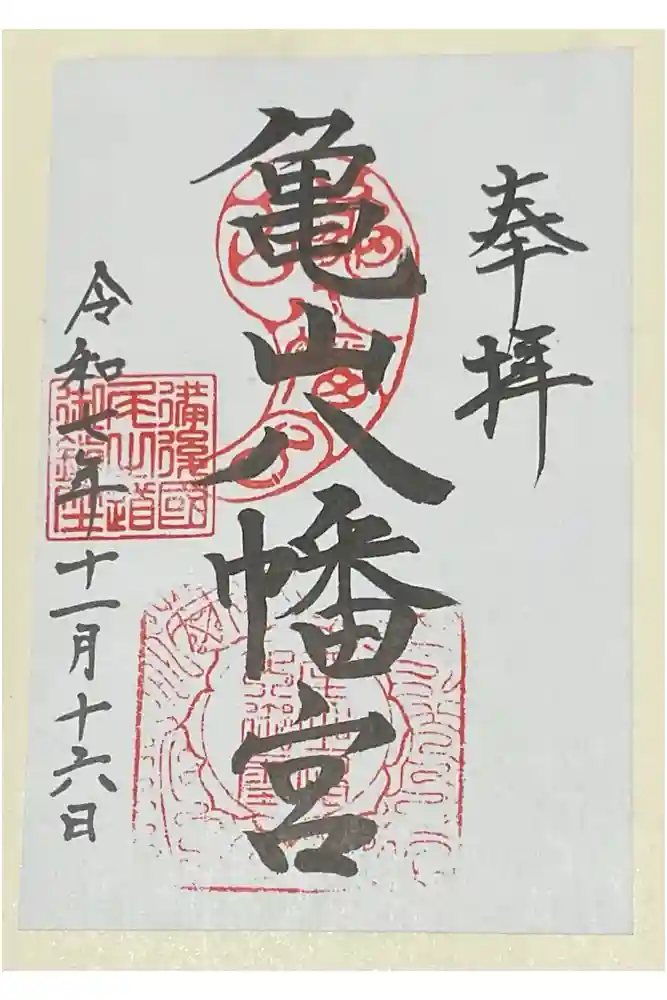 奉拝
亀山八幡宮
備後國
尾山道
御鎮座
令和七年十一月十六日